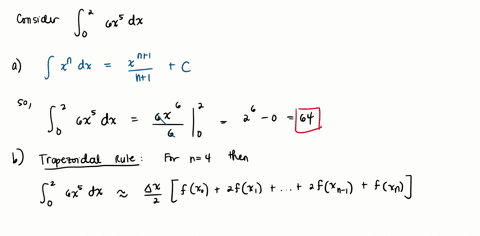 Consider ∫₀² 6x⁵ dx
a) ∫ xⁿ dx = xⁿ⁺¹/n+1 + C
so, ∫₀² 6x⁵ dx = 6x⁶/6 |₀² = 2⁶ - 0 = 64
b) Trapezoidal Rule: For n=4 then
∫₀² 6x⁵ dx ≈ Δx/2 [f(x₀) + 2f(x₁) + ... + 2f(xₙ₋₁) + f(xₙ)]